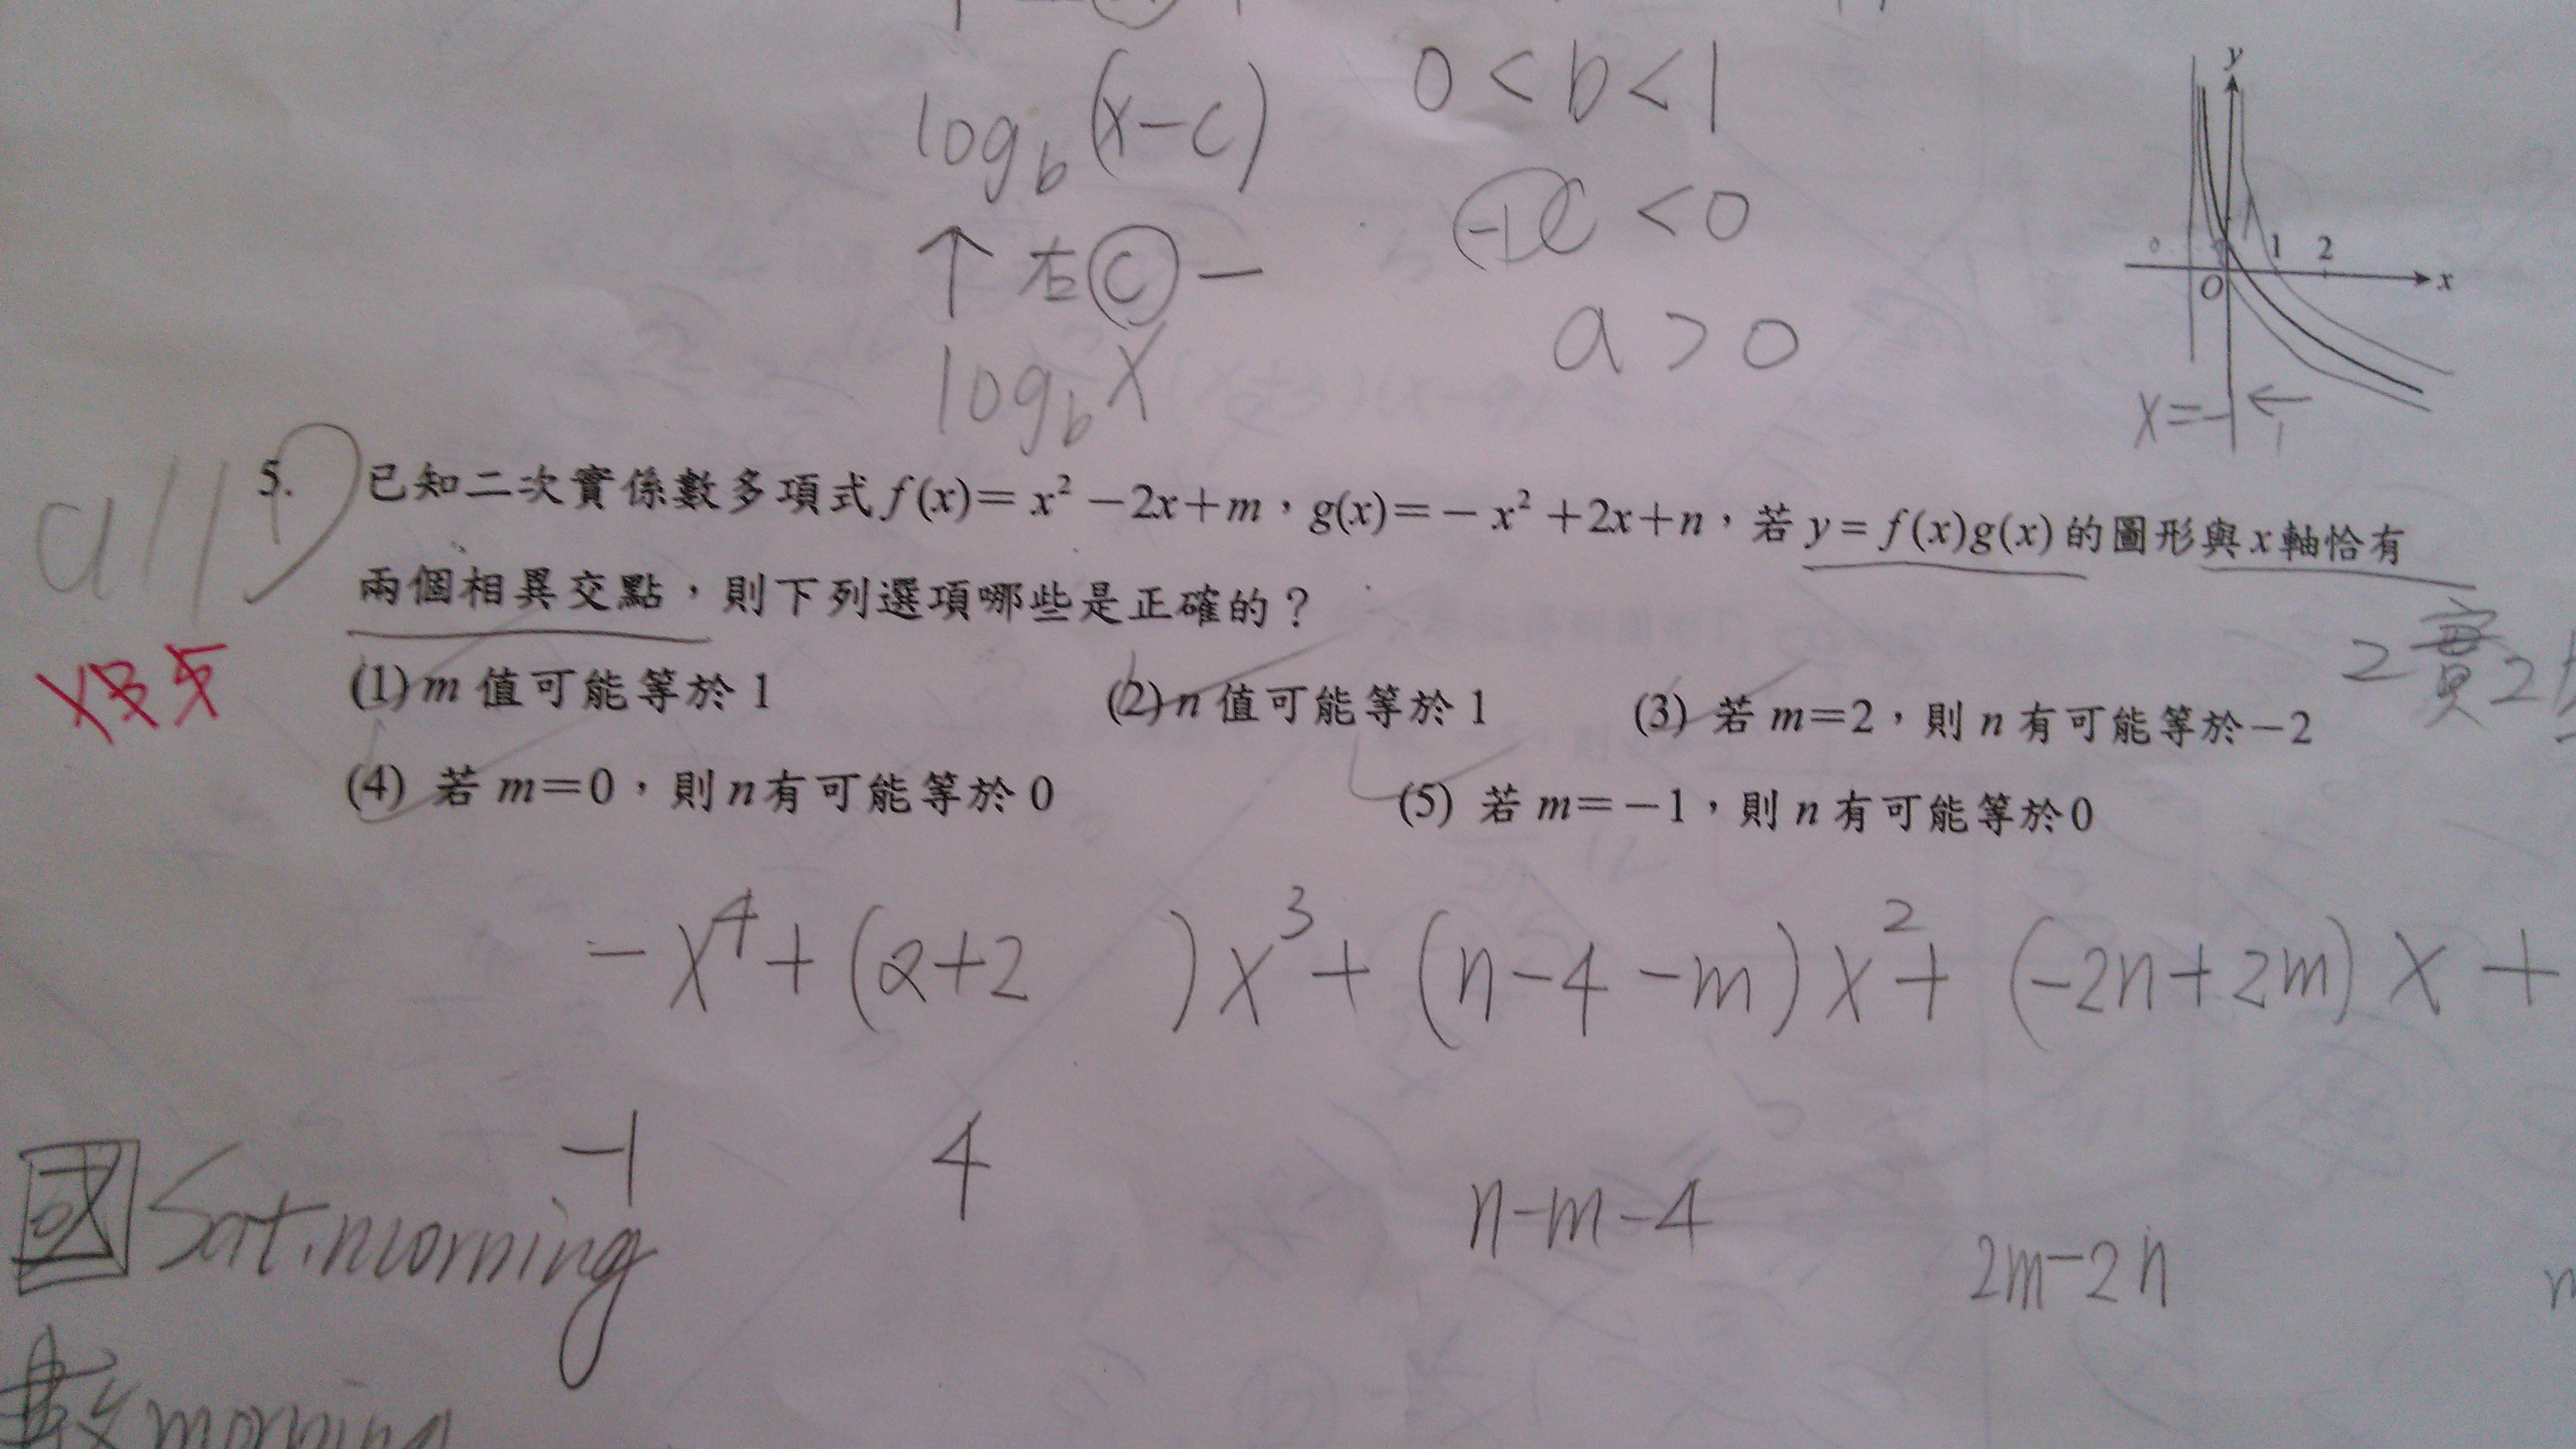 log_b (x-c)
0 < b < 1
↑ 右 c -
-1
c < 0
log_b x
a > 0
y
1 2
O x
x = -1 ←
all
5. 已知二次實係數多項式 f(x)= x² -2x+m,g(x)=- x² +2x+n,若 y = f(x)g(x) 的圖形與 x 軸恰有
兩個相異交點,則下列選項哪些是正確的?
2實2
(1) m 值可能等於 1 (2) n 值可能等於 1 (3) 若 m=2,則 n 有可能等於-2
(4) 若 m=0,則 n 有可能等於 0 (5) 若 m=-1,則 n 有可能等於 0
-x⁴ + (2+2 )x³ + (n-4-m)x² + (-2n+2m)x +
-1 4 n-m-4 2m-2n
國 Sat. morning
數 morning